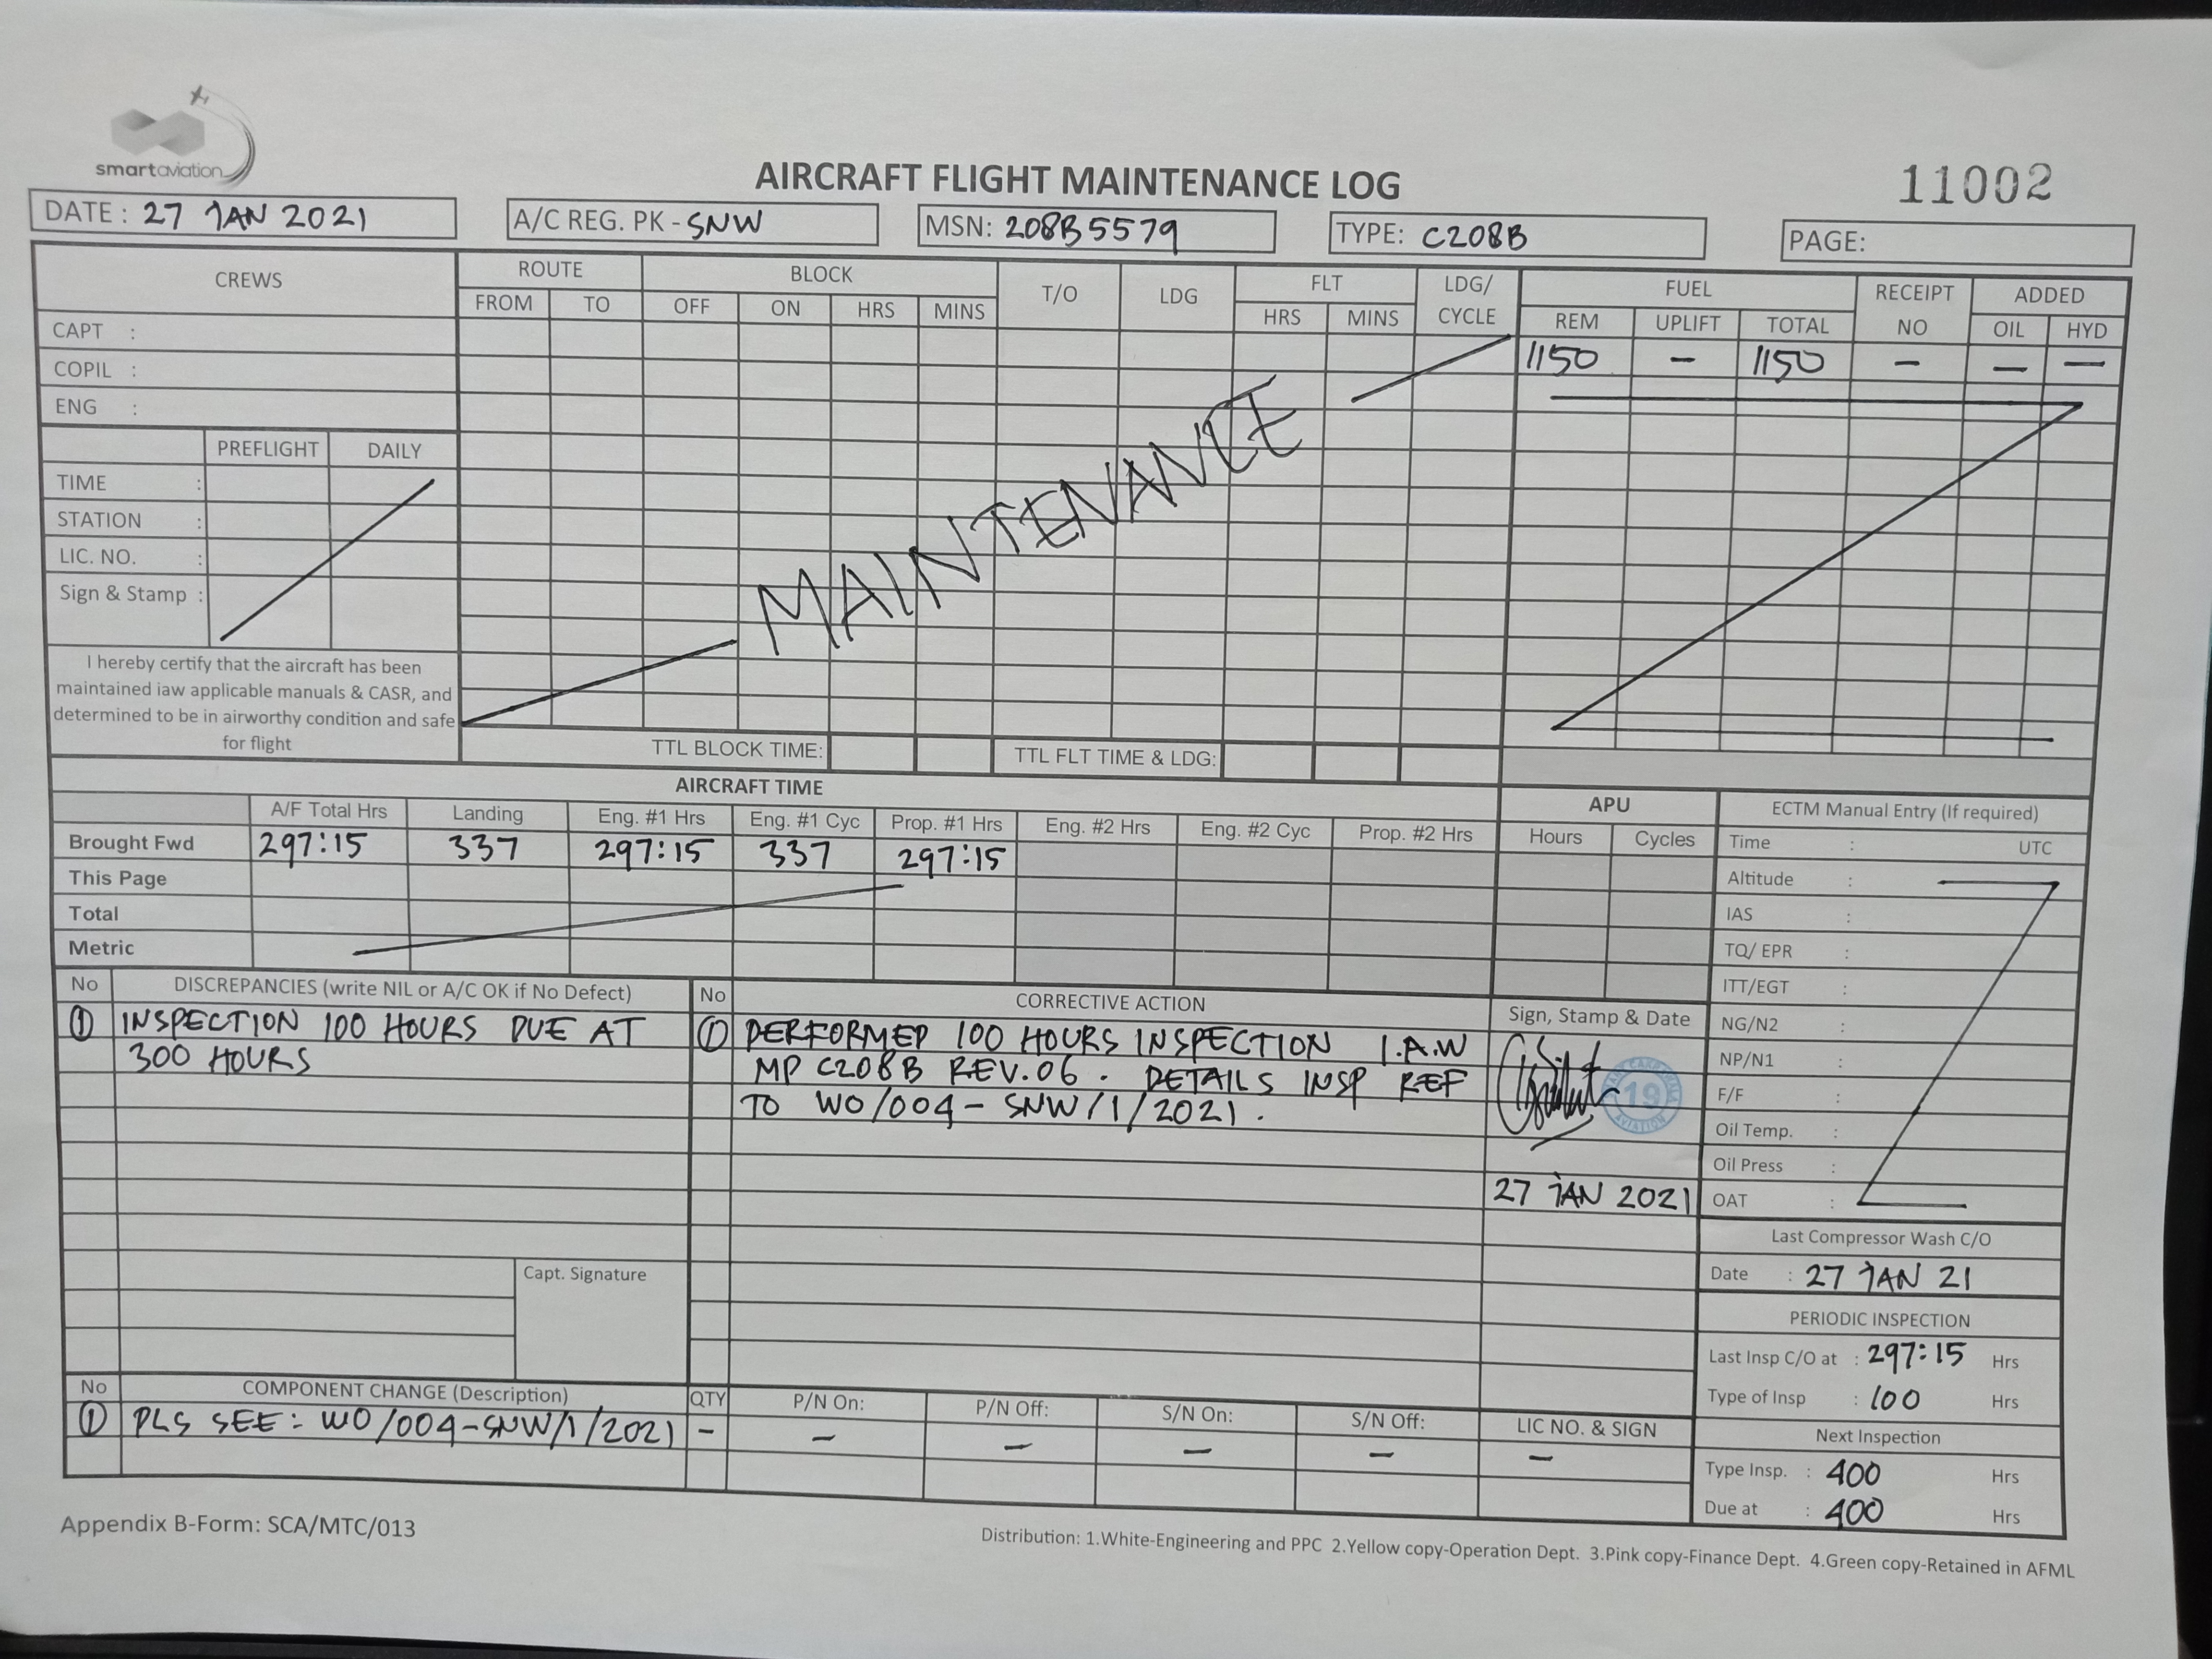 smartaviation
AIRCRAFT FLIGHT MAINTENANCE LOG
11002
DATE : 27 JAN 2021
A/C REG. PK - SNW
MSN: 208B5579
TYPE: C208B
PAGE:
CREWS
ROUTE
BLOCK
T/O
LDG
FLT
LDG/
CYCLE
FUEL
RECEIPT
NO
ADDED
FROM TO OFF ON HRS MINS HRS MINS REM UPLIFT TOTAL OIL HYD
CAPT :
1150 - 1150 - - -
COPIL :
ENG :
MAINTENANCE
PREFLIGHT DAILY
TIME :
STATION :
LIC. NO. :
Sign & Stamp :
I hereby certify that the aircraft has been
maintained iaw applicable manuals & CASR, and
determined to be in airworthy condition and safe
for flight
TTL BLOCK TIME:
TTL FLT TIME & LDG:
AIRCRAFT TIME
A/F Total Hrs Landing Eng. #1 Hrs Eng. #1 Cyc Prop. #1 Hrs Eng. #2 Hrs Eng. #2 Cyc Prop. #2 Hrs
Brought Fwd 297:15 337 297:15 337 297:15
This Page
Total
Metric
APU
Hours Cycles
ECTM Manual Entry (If required)
Time : UTC
Altitude :
IAS :
TQ/ EPR :
ITT/EGT :
NG/N2 :
NP/N1 :
F/F :
Oil Temp. :
Oil Press :
OAT :
No DISCREPANCIES (write NIL or A/C OK if No Defect)
① INSPECTION 100 HOURS DUE AT
300 HOURS
Capt. Signature
No CORRECTIVE ACTION
① PERFORMED 100 HOURS INSPECTION I.A.W
MP C208B REV.06 . DETAILS INSP REF
TO WO/004-SNW/1/2021 .
Sign, Stamp & Date
19
AVIATION
27 JAN 2021
Last Compressor Wash C/O
Date : 27 JAN 21
PERIODIC INSPECTION
Last Insp C/O at : 297:15 Hrs
Type of Insp : 100 Hrs
Next Inspection
Type Insp. : 400 Hrs
Due at : 400 Hrs
No COMPONENT CHANGE (Description) QTY P/N On: P/N Off: S/N On: S/N Off: LIC NO. & SIGN
① PLS SEE: WO/004-SNW/1/2021 - - - - - -
Appendix B-Form: SCA/MTC/013
Distribution: 1.White-Engineering and PPC 2.Yellow copy-Operation Dept. 3.Pink copy-Finance Dept. 4.Green copy-Retained in AFML